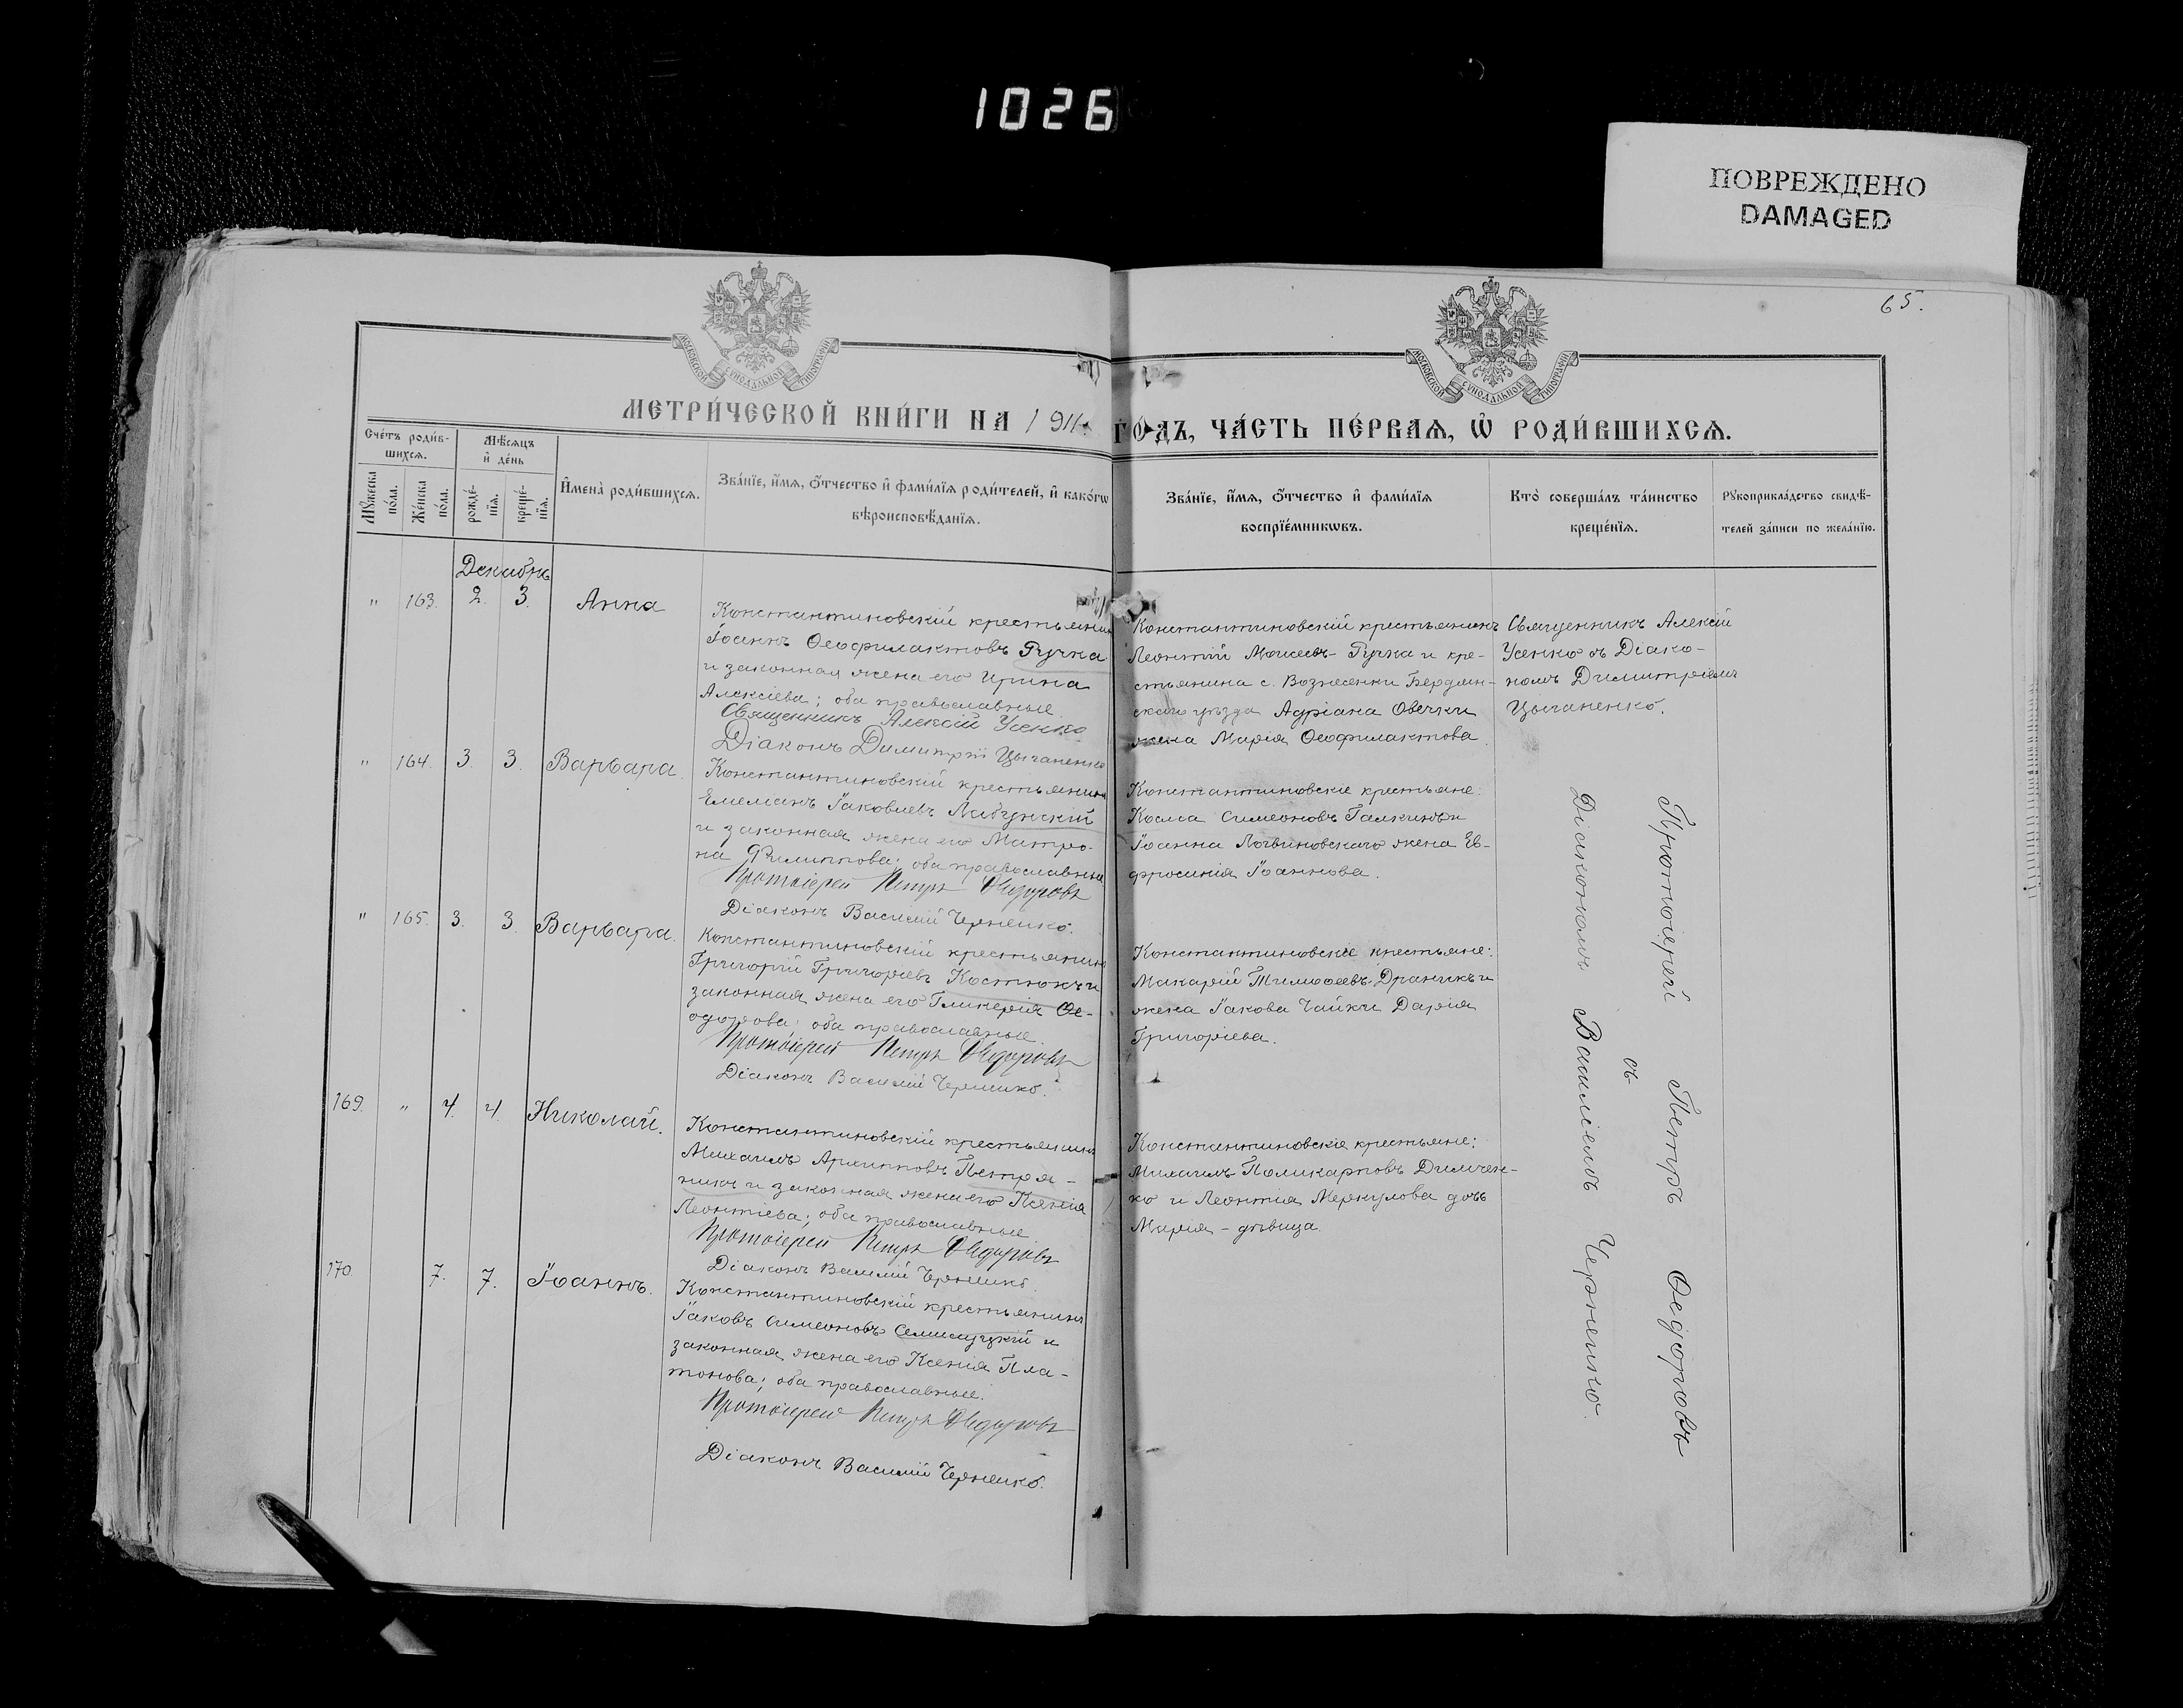 1026
ПОВРЕЖДЕНО
DAMAGED
65.
МОСКОВСКОЙ СѴНОДАЛЬНОЙ ТИПОГРАФІИ
МОСКОВСКОЙ СѴНОДАЛЬНОЙ ТИПОГРАФІИ
МЕТРИ́ЧЕСКОЙ КНИ́ГИ НА 1911 ГО́ДЪ, ЧА́СТЬ ПЕ́РВАѦ, Ѡ҆ РОДИ́ВШИХСѦ.
Сче́тъ роди́в-
шихсѧ.
Мꙋ́жеска
по́ла.
Же́нска
по́ла.
Мѣ́сѧцъ
и҆ де́нь
рожде́-
нїѧ.
креще́-
нїѧ.
И҆мена̀ роди́вшихсѧ.
Зва́нїе, и҆́мѧ, ѻ҆́тчество и҆ фами́лїѧ роди́телей, и҆ како́гѡ
вѣроисповѣ́данїѧ.
Зва́нїе, и҆́мѧ, ѻ҆́тчество и҆ фами́лїѧ
воспрїе́мникѡвъ.
Кто̀ соверша́лъ та́инство
креще́нїѧ.
Рꙋкоприкла́дство свидѣ́-
телей за́писи по жела́нїю.
Декабрь
" 163. 2. 3. Анна
Константиновскій крестьянинъ
Іоаннъ Ѳеофилактовъ Ручка
и законная жена его Ирина
Алексіева; оба православные.
Священникъ Алексій Усенко
Діаконъ Димитрій Цыганенко
Константиновскій крестьянинъ
Леонтій Моисеевъ Ручка и кре-
стьянина с. Вознесенки Бердян-
скаго уѣзда Адріана Овечки
жена Марія Ѳеофилактова.
Священникъ Алексій
Усенко съ Діако-
номъ Димитріемъ
Цыганенко.
" 164. 3. 3. Варвара.
Константиновскій крестьянинъ
Емеліанъ Іаковлевъ Лабунскій
и законная жена его Матро-
на Филиппова; оба православные
Протоіерей Петръ Ѳедоровъ
Діаконъ Василій Черненко.
Константиновскіе крестьяне:
Косма Симеоновъ Галкинъ и
Іоанна Логвиновскаго жена Ев-
фросинія Іоаннова.
" 165. 3. 3. Варвара.
Константиновскій крестьянинъ
Григорій Григоріевъ Костюкъ и
законная жена его Гликерія Ѳе-
одорова; оба православные.
Протоіерей Петръ Ѳедоровъ
Діаконъ Василій Черненко.
Константиновскіе крестьяне:
Макарій Тимоѳеевъ Драникъ и
жена Іакова Чайки Дарія
Григоріева.
169. " 4. 4. Николай.
Константиновскій крестьянинъ
Михаилъ Архипповъ Петря-
никъ и законная жена его Ксенія
Леонтіева; оба православные
Протоіерей Петръ Ѳедоровъ
Діаконъ Василій Черненко.
Константиновскіе крестьяне:
Михаилъ Поликарповъ Димчен-
ко и Леонтія Меркулова дочь
Марія - дѣвица.
170. 7. 7. Іоаннъ.
Константиновскій крестьянинъ
Іаковъ Симеоновъ и
законная жена его Ксенія Пла-
тонова; оба православные.
Протоіерей Петръ Ѳедоровъ
Діаконъ Василій Черненко.
Протоіерей Петръ Ѳедоровъ
съ
Діакономъ Василіемъ Черненко.